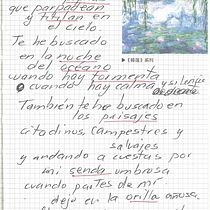 que parpadean
y titilan en
el cielo.
Te he buscado
en la noche
del océano
cuando hay tormenta
o cuando hay calma
y silencio
También te he buscado en
los paisajes
citadinos, campestres y
salvajes
y andando a cuestas por
mi senda umbrosa
cuando partes de mí
dejo en la orilla